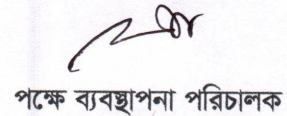 পক্ষে ব্যবস্থাপনা পরিচালক